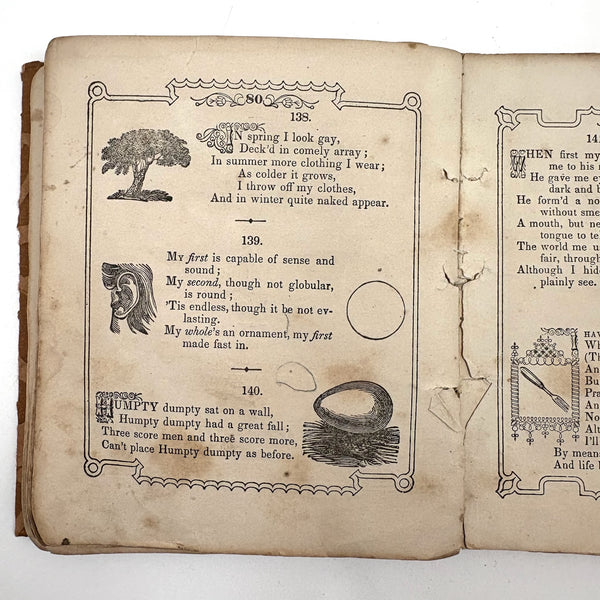 80
138.
IN spring I look gay,
Deck'd in comely array;
In summer more clothing I wear;
As colder it grows,
I throw off my clothes,
And in winter quite naked appear.
139.
My first is capable of sense and
sound;
My second, though not globular,
is round;
'Tis endless, though it be not ev-
lasting.
My whole's an ornament, my first
made fast in.
140.
HUMPTY dumpty sat on a wall,
Humpty dumpty had a great fall;
Three score men and three score more,
Can't place Humpty dumpty as before.
14
WHEN first my
me to his
He gave me
dark and
He form'd a no
without
A mouth, but
tongue to
The world me
fair, through
Although I
plainly see.
HAV
Wh
(Th
An
Bu
Pra
An
No
Alt
I'll
By means
And life